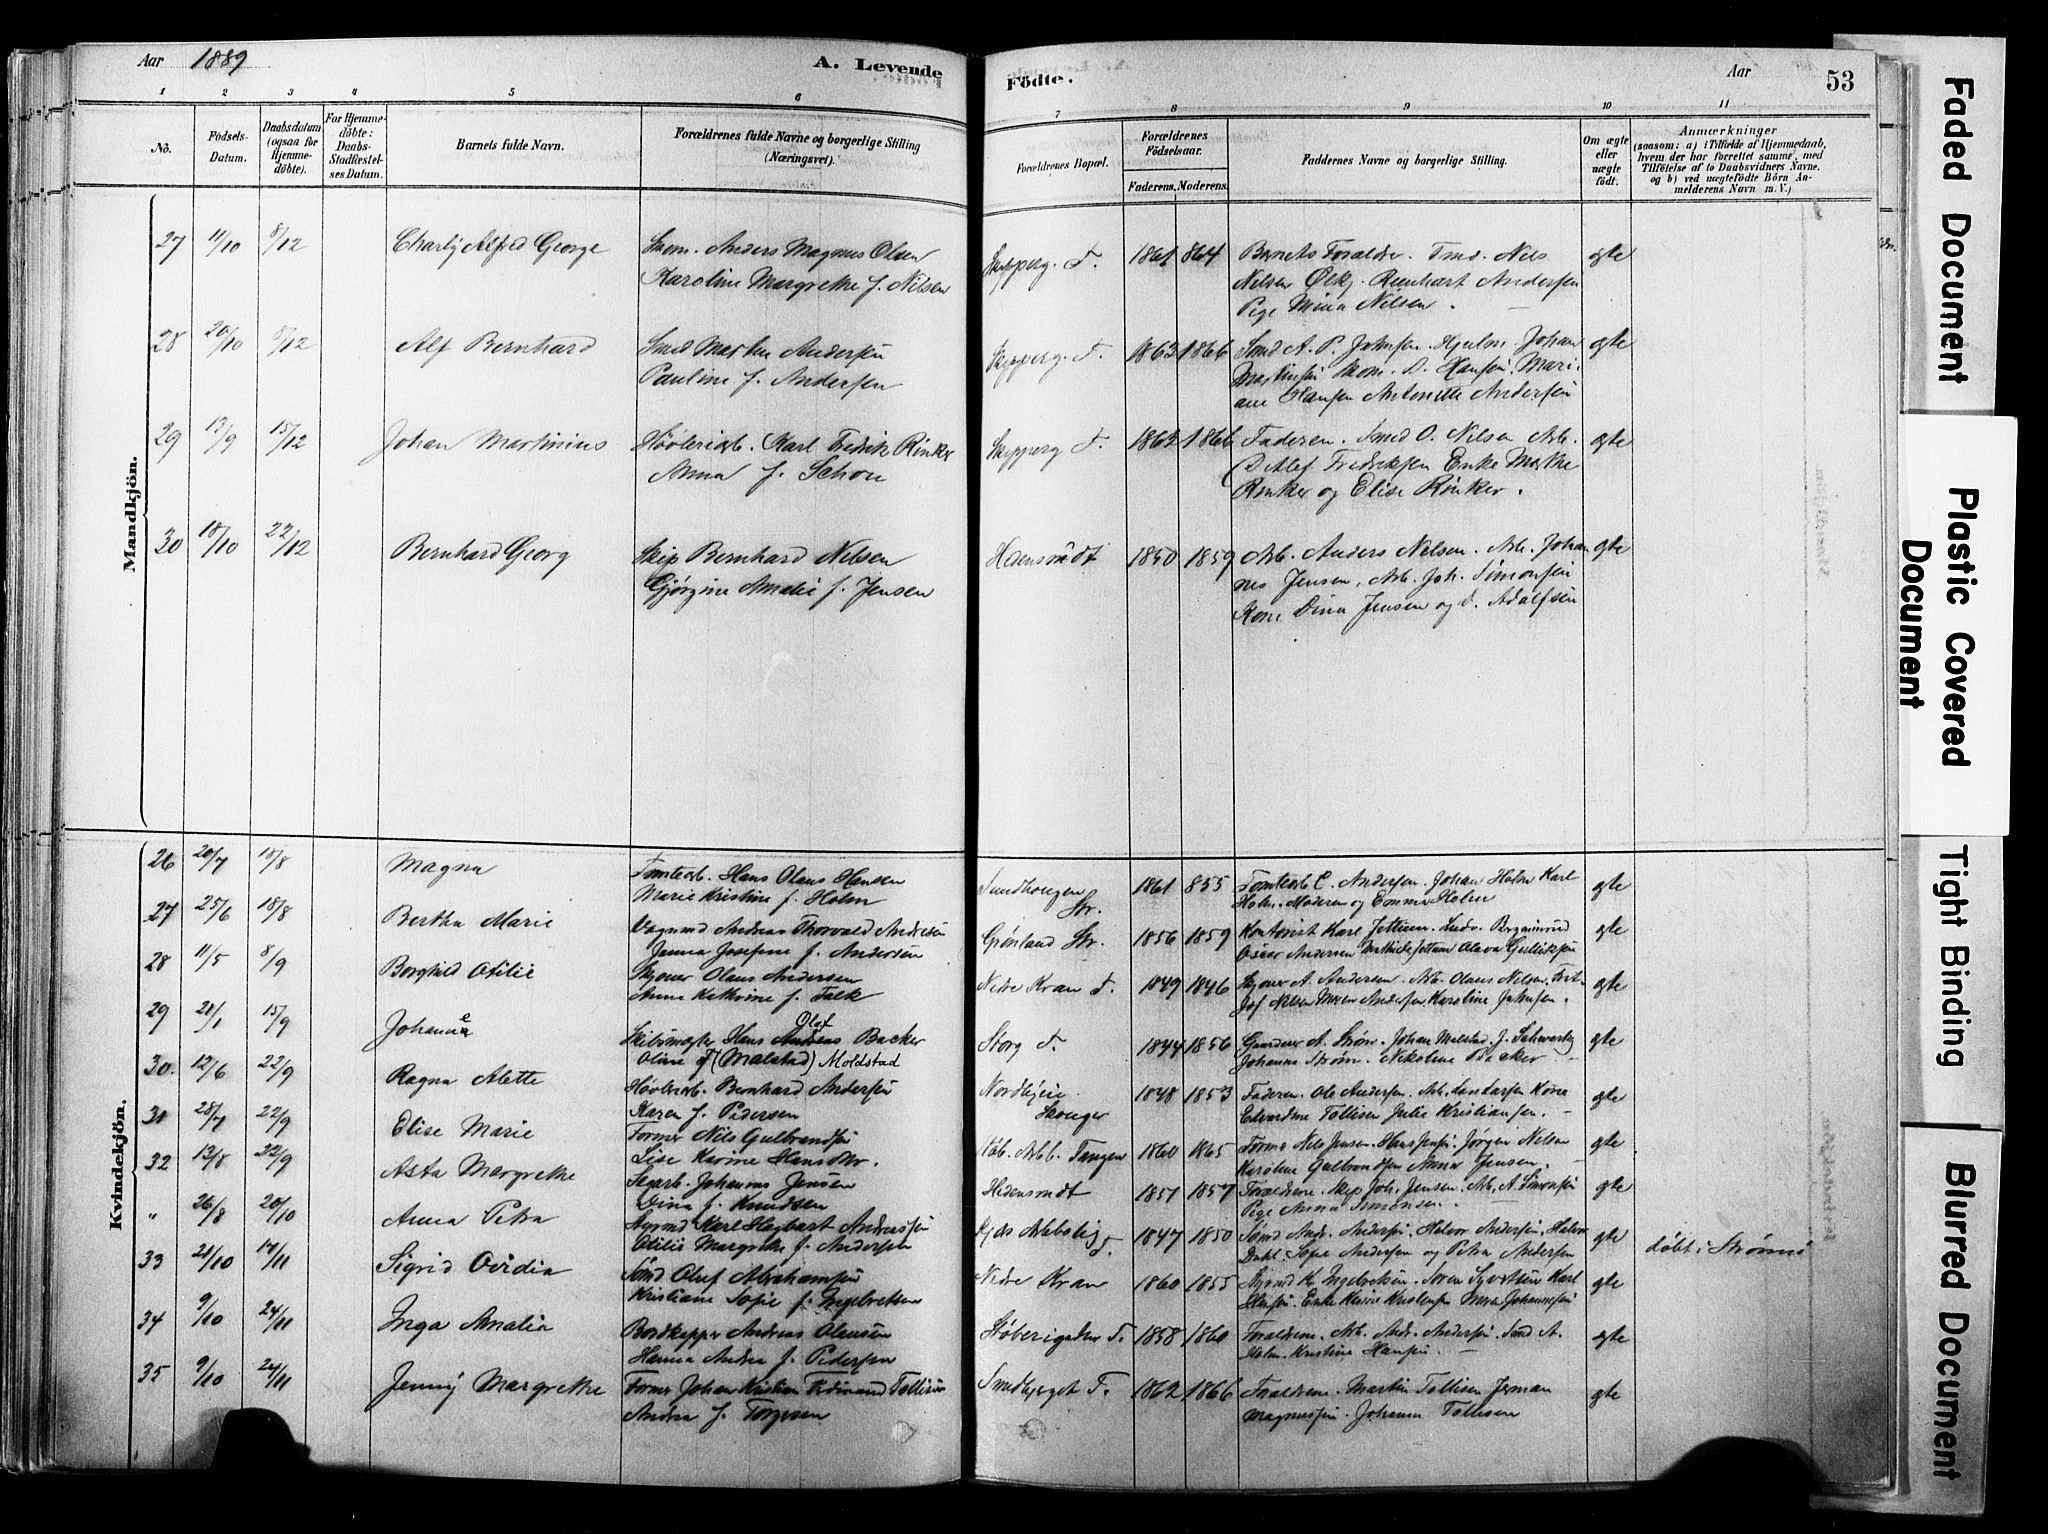 Aar 1889
A. Levende
1 2 3 4 5 6
No.
Födsels-
Datum.
Daabsdatum
(ogsaa for
Hjemme-
döbte).
For Hjemme-
döbte:
Daabs-
Stadfæstel-
ses Datum.
Barnets fulde Navn.
Forældrenes fulde Navne og borgerlige Stilling
(Næringsvei).
Mandkjön.
27 11/10 8/12 Charly Alfred George
Skom. Anders Magnus Olsen
Karoline Margrethe f. Nilsen
28 20/10 8/12 Alf Bernhard
Smed Martin Andersen
Pauline f. Andersen
29 13/9 15/12 Johan Martinius
Høvleriarb. Karl Fredrik Rinker
Anna f. Schou
30 18/10 22/12 Bernhard Georg
Skip Bernhard Nilsen
Gjørgine Amalie f. Jensen
Kvindekjön.
26 20/7 18/8 Magna
Tomtearb. Hans Olaus Hansen
Marie Kristine f. Holm
27 25/6 18/8 Bertha Marie
Vognmd Andreas Thorvald Andresen
Jenna Josefine f. Andersen
28 11/5 8/9 Borghild Otilie
Skyver Olaus Andersen
Anne Kathrine f. Falk
29 21/1 15/9 Johanne
Skibsmægler Hans Olaf Becker
Oline f (Malstad) Moldstad
30. 12/6 22/9 Ragna Alette
Høvleriarb. Bernhard Andersen
Karen f. Pedersen
31 28/7 22/9 Elise Marie
Former Nils Gulbrandsen
Lise Karine Hansdtr.
32 13/8 22/9 Asta Margrethe
Sagarb. Johannes Jensen
Dina f. Knudsen
" 26/8 20/10 Anna Petra
Styrmd Karl Hagbart Andreassen
Otilie Margrethe f. Andersen
33 21/10 17/11 Sigrid Ovidia
Sømd Oluf Abrahamsen
Kristiane Sofie f. Ingebretsen
34 9/10 24/11 Inga Amalia
Bordkapper Andreas Olausen
Hanna Andrea f. Pedersen
35 9/10 24/11 Jenny Margrethe
Former Johan Kristian Ferdinand Tollisen
Andrea f. Torgesen
Födte.
Aar 53
7 8 9 10 11
Forældrenes Bopæl.
Forældrenes
Födselsaar.
Faderens. Moderens.
Faddernes Navne og borgerlige Stilling.
Om ægte
eller
uægte
födt.
Anmærkninger
(saasom: a) i Tilfælde af Hjemmedaab,
hvem der har forrettet samme, med
Tilföielse af to Daabsvidners Navne.
og b) ved uægtefödte Börn An-
melderens Navn m. V.)
Skipperg. T. 1861 864 Barnets Forældre. Tmd. Nils
Nilsen Ølkj. Reinhart Andersen
Pige Mina Nilsen. ægte
Skipperg. T. 1863 1866 Smed A. P. Johnsen. Hjulm. Johan
Martinsen Skom. O. Hansen. Mari-
ane Hansen Antonette Andersen ægte
Skipperg T. 1862 1866 Faderen. Smed O. Nilsen Arb.
Detlef Fredriksen Enke Marthe
Rinker og Elise Rinker. ægte
Hedensrudt 1850 1859 Arb. Anders Nilsen. Arb. Johan-
nes Jensen, Arb. Joh. Simonsen
Kone Dina Jensen og D. Adolfsen ægte
Sundhaugen
Str. 1861 855 Tomtearb C. Andersen. Johan Holm Karl
Holm. Moderen og Emma Holm ægte
Grønland Str. 1856 1859 Kontorist Karl Jettum. Ludv. Bergminrud
Oscar Andersen Mathilde Jettum Olava Gulliksen ægte
Nedre Kran T. 1849 1846 Skyver A. Andersen. Arb. Olaus Nilsen. Frit-
jof Nilsen Maren Andersen, Karoline Johnsen. ægte
Storg T. 1844 1856 Gaardeier A. Strøm. Johan Malstad. J. Schwartz
Johanna Strøm. Nikoline Becker ægte
Nordbyeie
Skouger 1848 1853 Faderen. Ole Andersen. Arb. Kone
Edvardine Tollisen Julie Kristiansen. ægte
Støb. Arb. Tangen 1860 1865 Former Nils Jensen. Hans Jensen. Jørgen Nilsen
Karoline Gulbrandsen Anna Jensen. ægte
Hedensrudt 1851 1857 Forældrene. Skip Joh. Jensen. Arb. A. Simonsen
Pige Anna Simonsen. ægte
T. 1847 1850 Sømd Andr. Andersen, Halvor Andersen, Halvor
Dahl. Sofie Andersen og Petra Andersen ægte døbt i Strømsø
Nedre Kran 1860 1855 Styrmd K. Ingebretsen. Søren Syvertsen Karl
Hansen. Enke Karine Kristensen Maren Johannesen ægte
Støberigaden T. 1858 1860 Forældrene. Arb. Andr. Andersen. Smd A.
Holm. Kristine Hansen. ægte
Smedbjerget T. 1862 1866 Forældrene. Martin Tollisen Herman
Magnussen. Johanna Tollisen ægte
Faded Document
Plastic Covered
Document
Tight Binding
Blurred Document